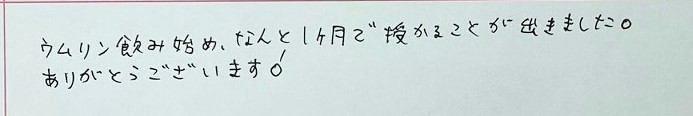 ウムリン飲み始め、なんと1ヶ月で授かることが出きました。
ありがとうございます!